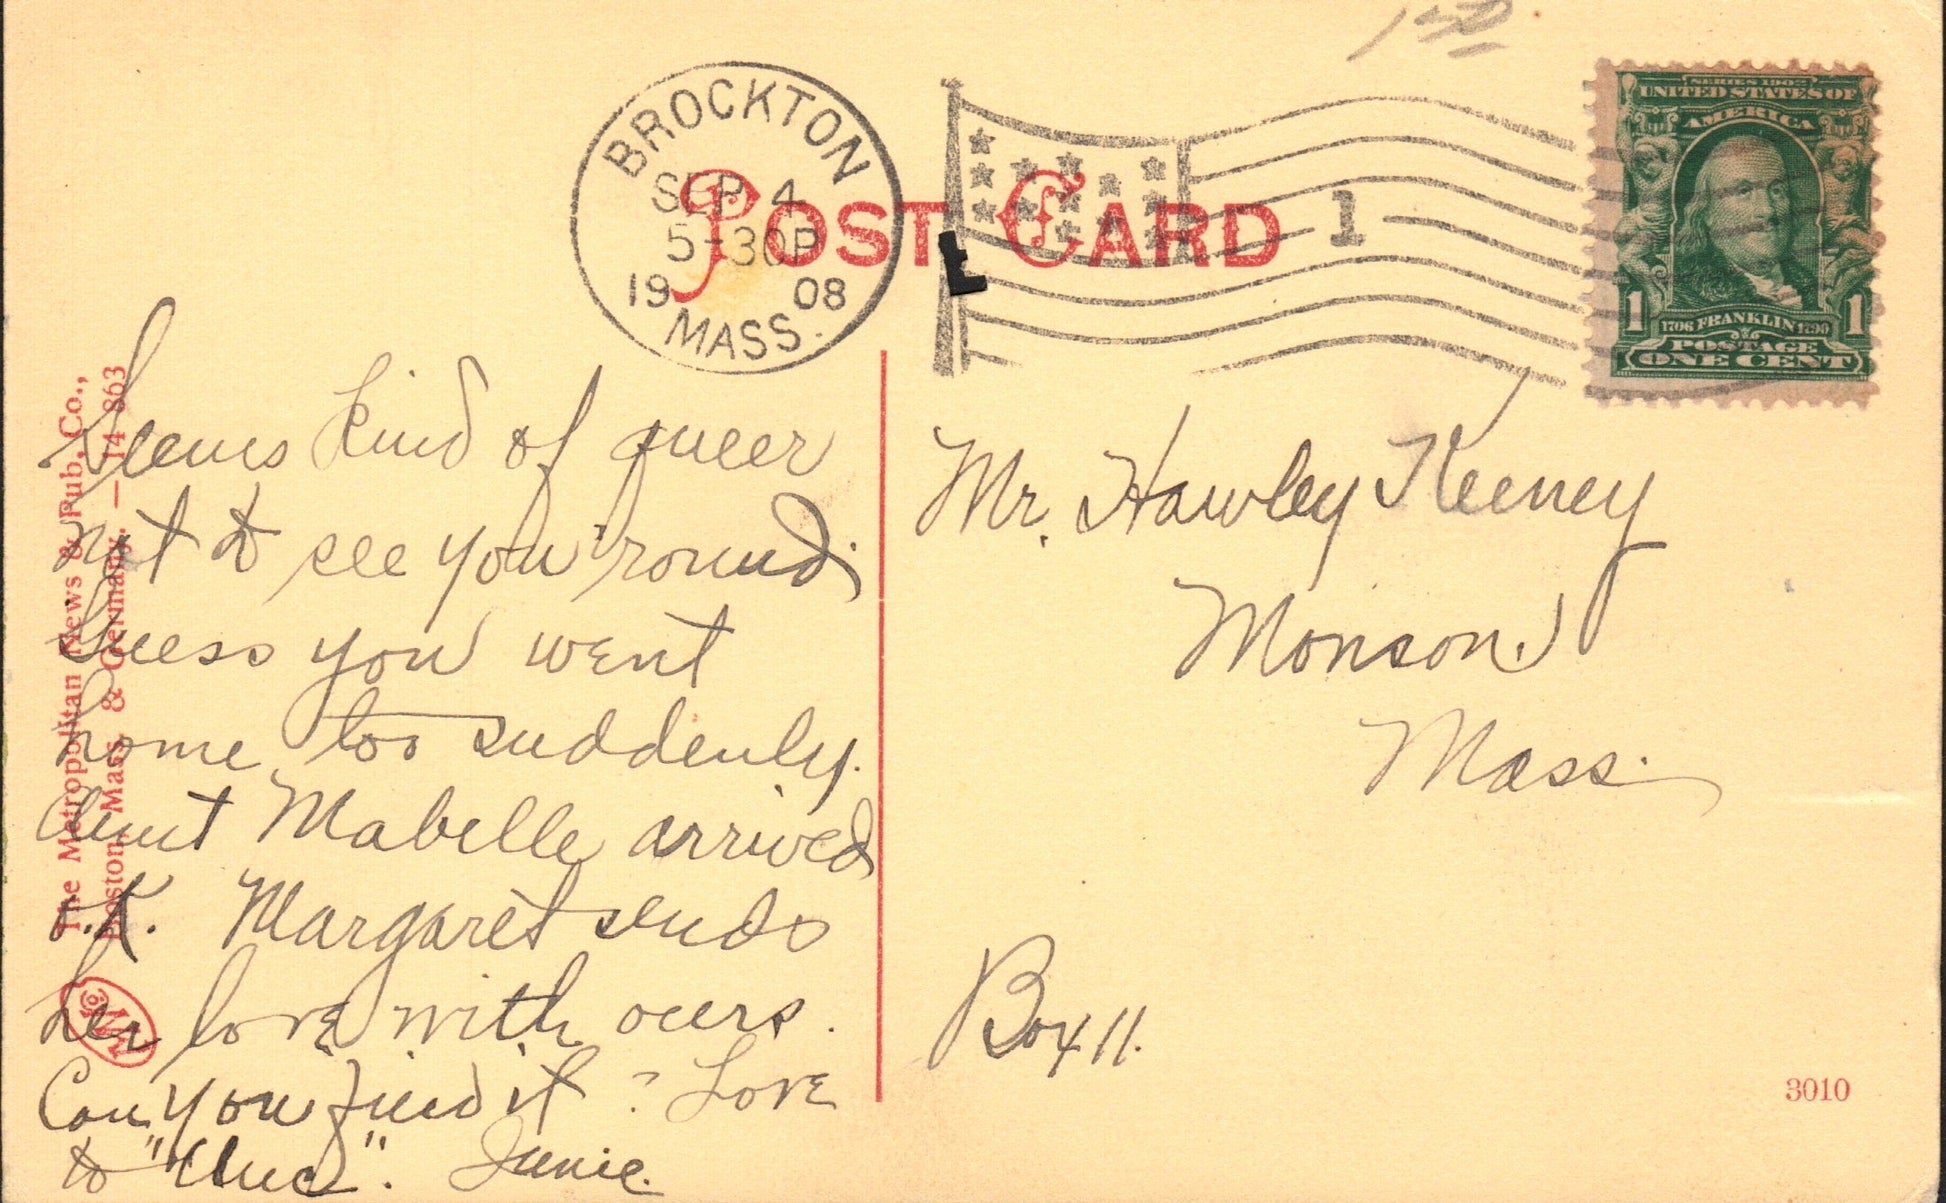 BROCKTON
SEP 4
5-30P
1908
MASS.
1
POST CARD
SERIES 1902
UNITED STATES OF
AMERICA
1 1
1706 FRANKLIN 1790
POSTAGE
ONE CENT
Seems kind of queer
not to see you 'round.
Guess you went
home too suddenly.
Aunt Mabelle arrived
O.K. Margaret sends
her love with ours.
Can you find it? Love
to
Junie.
Mr. Hawley Keeney
Monson,
Mass.
Box 11.
The Metropolitan News & Pub. Co.,
Boston, Mass. & Germany. — 14 863
3010